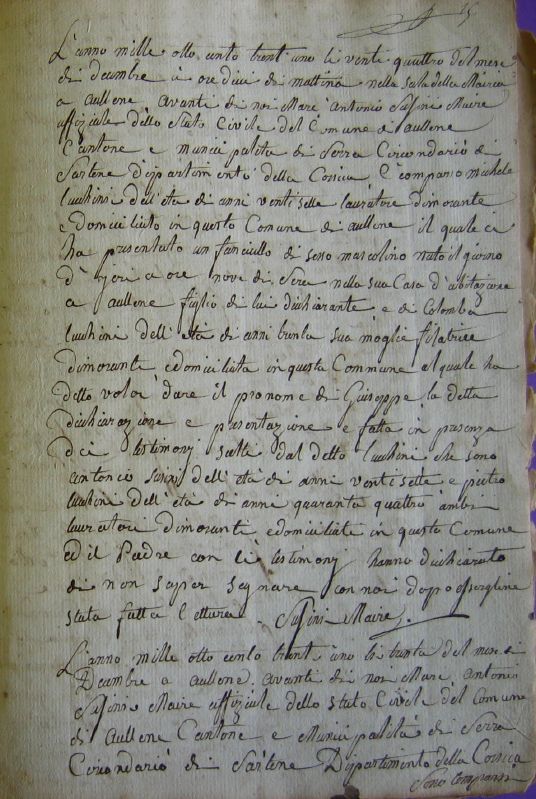 15
L'anno mille otto cento trent uno li venti quattro del mese
di decembre a ore dieci di mattina nella sala della Mairia
a aullene avanti di noi Marc' Antonio Susini Maire
uffiziale dello Stato Civile del Comune di aullene
Cantone e municipalità di Serra Circondario di
Sartene dipartimento della Corsica è comparso michele
lucchini dell'età di anni venti sette lauratore dimorante
e domiciliato in questo Comune di aullene il quale ci
ha presentato un fanciullo di sesso mascolino nato il giorno
d'jeri a ore nove di sera nella sua Casa d'abitazione
a aullene figlio di lui dichiarante e di Colomba
lucchini dell'età di anni trenta sua moglie filatrice
dimorante e domiciliata in questa Commune al quale ha
detto voler dare il pronome di Giuseppe la detta
dichiarazione e presentazione è fatta in presenza
dei testimonj scelti dal detto lucchini che sono
antonio susini dell'età di anni venti sette e pietro
lucchini dell'età di anni quaranta quattro ambi
lauratori dimoranti e domiciliati in questo Comune
ed il Padre con li testimonj hanno dichiarato
di non saper segnare con noi dopo essergline
stata fatta lettura. Susini Maire
L'anno mille otto cento trent uno li trenta del mese di
Decembre a aullene, avanti di noi Marc' antonio
Susini Maire uffiziale dello Stato Civile del Comune
di aullene Cantone e Municipalità di Serra
Circondario di Sartene Dipartimento della Corsica
Sono comparsi